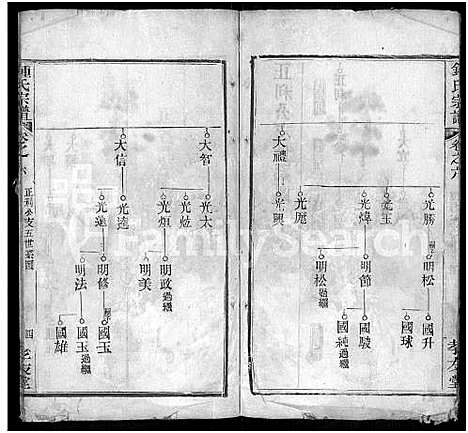 鍾氏宗譜
卷之六
孝友堂
大禮
光勝
光玉
光煒
光庬
光興
明松
明節
明松過繼
國升
國球
國駿
國純過繼
大智
大信
光太
光遠
光進
明政過繼
明美
明修
明法
國玉
國玉過繼
國雄
鍾氏宗譜
卷之六
正利公支五世系圖
四
孝友堂
FamilySearch